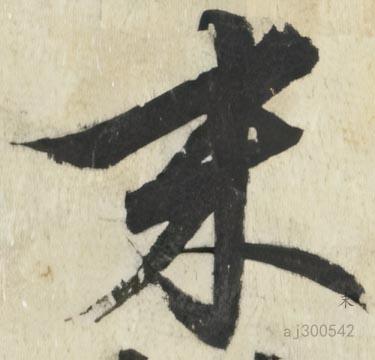 末
末
aj300542